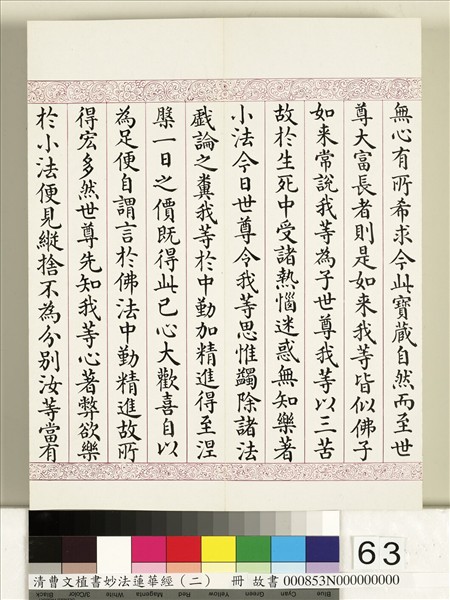 無心有所希求今此寶藏自然而至世
尊大富長者則是如來我等皆似佛子
如来常說我等為子世尊我等以三苦
故於生死中受諸熱惱迷惑無知樂著
小法今日世尊令我等思惟蠲除諸法
戲論之糞我等於中勤加精進得至涅
槃一日之價既得此已心大歡喜自以
為足便自謂言於佛法中勤精進故所
得宏多然世尊先知我等心著弊欲樂
於小法便見縱捨不為分別汝等當有
63
清曹文植書妙法蓮華經（二） 冊 故書 000853N000000000
Black 3/Color White Magenta Red Yellow Green Cyan Blue